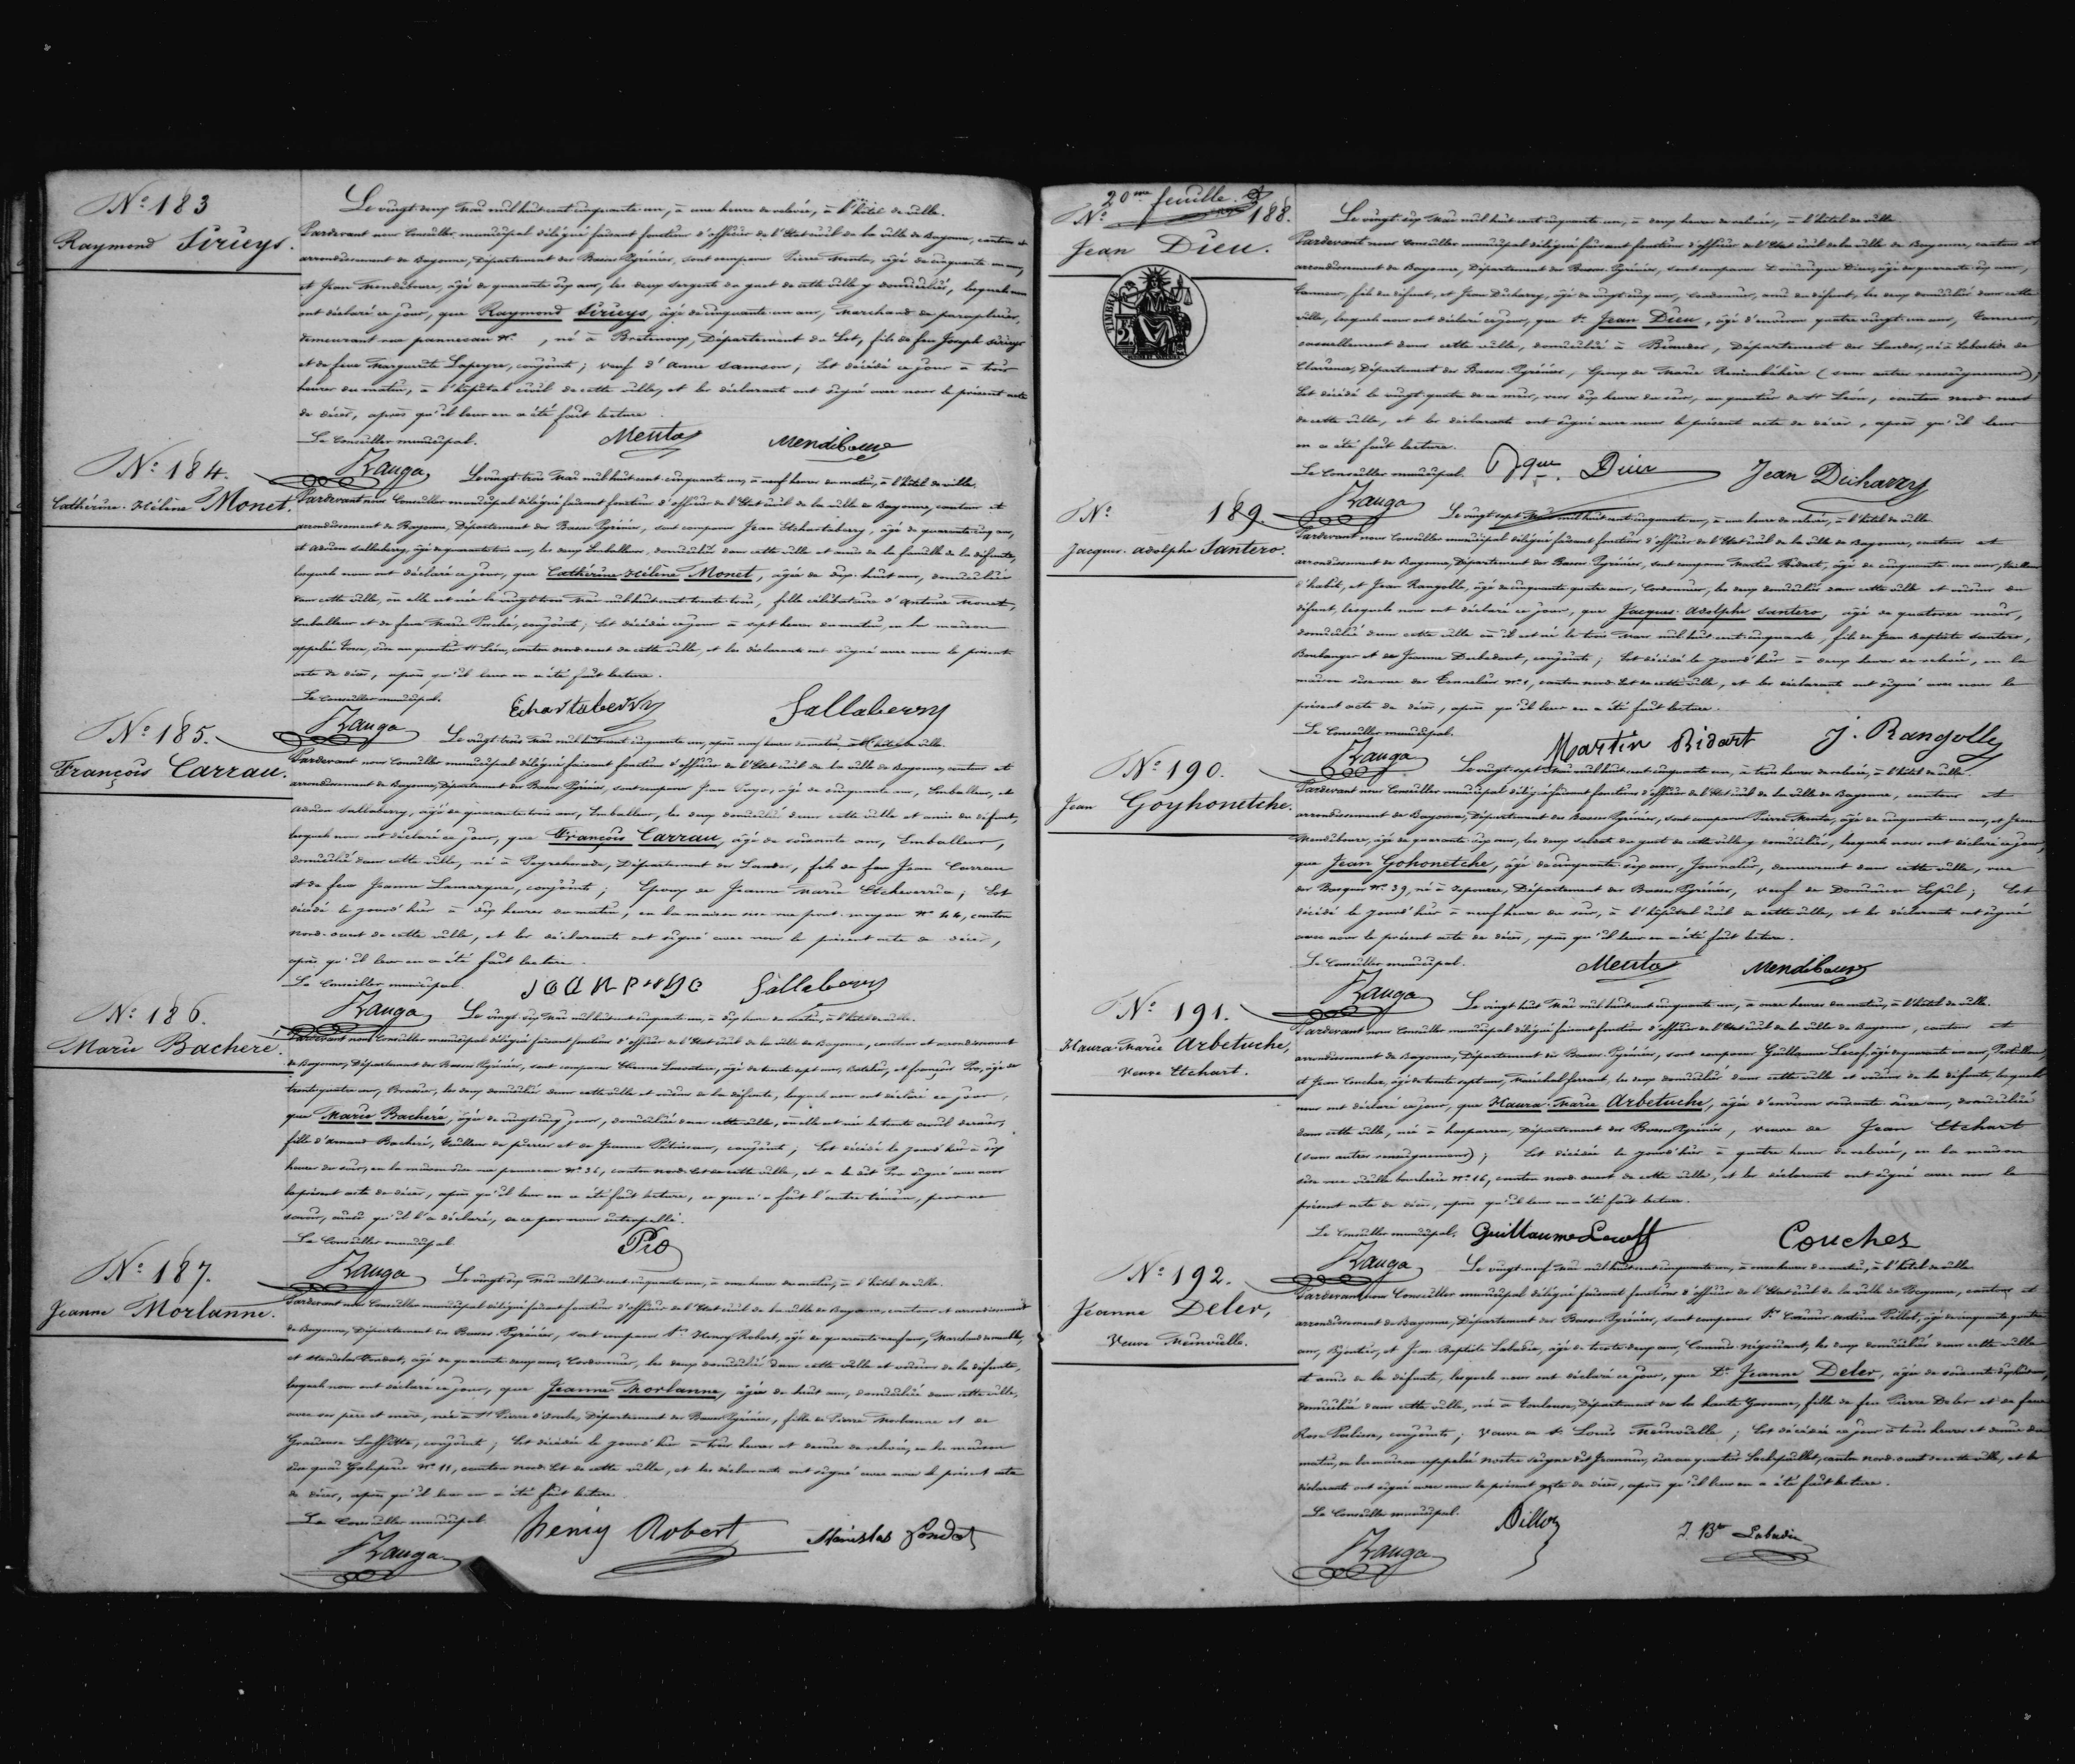 Nº 183
Raymond Sirieys.
Le vingt deux Mai mil huit cent cinquante un, à une heure de relevée, à l'hôtel de ville.
Pardevant nous Conseiller municipal délégué faisant fonction d'officier de l'Etat civil de la ville de Bayonne, canton et
arrondissement de Bayonne, Département des Basses Pyrénées, sont comparus Pierre Menta, âgé de cinquante un ans,
et Jean Mendiboure, âgé de quarante six ans, les deux sergents du guet de cette ville y domiciliés, lesquels nous
ont déclaré ce jour, que Raymond Sirieys, âgé de cinquante un ans, Marchand de parapluies,
demeurant rue pannecau nº , né à Bretenoux, Département du Lot, fils de feu Joseph Sirieys
et de feue Marguerite Lapeyre, conjoints ; veuf d'Anne Samson ; Est décédé ce jour à trois
heures du matin, à l'hôpital civil de cette ville, et les déclarants ont signé avec nous le présent acte
de décès, après qu'il leur en a été fait lecture.
Le Conseiller municipal. Menta Mendiboure
Zauga
Nº 184.
Catherine-Hélène Monet.
Le vingt-trois Mai mil huit cent cinquante un, à neuf heures du matin, à l'hôtel de ville.
Pardevant nous Conseiller municipal délégué faisant fonction d'officier de l'Etat civil de la ville de Bayonne, canton et
arrondissement de Bayonne, Département des Basses Pyrénées, sont comparus Jean Etchartaberry, âgé de quarante cinq ans,
et Adrien Sallaberry, âgé de quarante trois ans, les deux Emballeurs, domiciliés dans cette ville et amis de la famille de la défunte,
lesquels nous ont déclaré ce jour, que Catherine-Hélène Monet, âgée de dix-huit ans, domiciliée
dans cette ville, où elle est née le vingt trois Mai mil huit cent trente trois, fille célibataire d'Antoine Monet,
Emballeur et de feue Marie Porché, conjoints ; Est décédée ce jour à sept heures du matin, en la maison
appelée sise au quartier St Léon, canton nord-ouest de cette ville, et les déclarants ont signé avec nous le présent
acte de décès, après qu'il leur en a été fait lecture.
Le Conseiller municipal. Echartaberry Sallaberry
Zauga
Nº 185.
François Carrau.
Le vingt-trois Mai mil huit cent cinquante un, après neuf heures du matin, à l'hôtel de ville.
Pardevant nous Conseiller municipal délégué faisant fonction d'officier de l'Etat civil de la ville de Bayonne, canton et
arrondissement de Bayonne, Département des Basses Pyrénées, sont comparus Jean âgé de cinquante ans, Emballeur, et
Adrien Sallaberry, âgé de quarante trois ans, Emballeur, les deux domiciliés dans cette ville et amis du défunt,
lesquels nous ont déclaré ce jour, que François Carrau, âgé de soixante ans, Emballeur,
domicilié dans cette ville, né à Peyrehorade, Département des Landes, fils de feu Jean Carrau
et de feue Jeanne Lamarque, conjoints ; Epoux de Jeanne Marie Etcheverria ; Est
décédé le jourd'hier à dix heures du matin, en la maison sise rue pont-mayou nº 44, canton
nord-ouest de cette ville, et les déclarants ont signé avec nous le présent acte de décès,
après qu'il leur en a été fait lecture.
Le Conseiller municipal. Sallaberry
Zauga
Nº 186.
Marie Bacheré.
Le vingt-six Mai mil huit cent cinquante un, à dix heures du matin, à l'hôtel de ville.
Pardevant nous Conseiller municipal délégué faisant fonction d'officier de l'Etat civil de la ville de Bayonne, canton et arrondissement
de Bayonne, Département des Basses Pyrénées, sont comparus Etienne âgé de trente sept ans, Batelier, et françois Pro, âgé de
trente quatre ans, les deux domiciliés dans cette ville et voisins de la défunte, lesquels nous ont déclaré ce jour,
que Marie Bacheré, âgée de vingt cinq jours, domiciliée dans cette ville, où elle est née le trente avril dernier,
fille d'Arnaud Bacheré, tailleur de pierres et de Jeanne conjoints ; Est décédée le jourd'hier à six
heures du soir, en la maison sise rue pannecau nº 36, canton nord-est de cette ville, et a le dit Pro signé avec nous
le présent acte de décès, après qu'il leur en a été fait lecture, ce que n'a fait l'autre témoin, pour ne
savoir, ainsi qu'il l'a déclaré, de ce par nous interpellé.
Le Conseiller municipal. Pro
Zauga
Nº 187.
Jeanne Morlanne.
Le vingt six Mai mil huit cent cinquante un, à onze heures du matin, à l'hôtel de ville.
Pardevant nous Conseiller municipal délégué faisant fonction d'officier de l'Etat civil de la ville de Bayonne, canton et arrondissement
de Bayonne, Département des Basses-Pyrénées, sont comparus Sr Henry Robert, âgé de quarante neuf ans, Marchand de meubles,
et Stanislas âgé de quarante deux ans, Cordonnier, les deux domiciliés dans cette ville et voisins de la défunte,
lesquels nous ont déclaré ce jour, que Jeanne Morlanne, âgée de huit ans, domiciliée dans cette ville,
avec ses père et mère, née à St Pierre d'Irube, Département des Basses Pyrénées, fille de Pierre Morlanne et de
Gracieuse Laffitte, conjoints ; Est décédée le jourd'hier à trois heures et demie de relevée, en la maison
sise quai Galuperie nº 11, canton nord-Est de cette ville, et les déclarants ont signé avec nous le présent acte
de décès, après qu'il leur en a été fait lecture.
Le Conseiller municipal. henry Robert Stanislas
Zauga
20me feuille.
Nº 188.
Jean Dieu.
TIMBRE
Le vingt six Mai mil huit cent cinquante un, à deux heures de relevée, à l'hôtel de ville
Pardevant nous Conseiller municipal délégué faisant fonction d'officier de l'Etat civil de la ville de Bayonne, canton et
arrondissement de Bayonne, Département des Basses-Pyrénées, sont comparus Dominique Dieu, âgé de quarante six ans,
Tanneur, fils du défunt, et Jean Ducharry, âgé de vingt cinq ans, Cordonnier, ami du défunt, les deux domiciliés dans cette
ville, lesquels nous ont déclaré ce jour, que Sr Jean Dieu, âgé d'environ quatre vingt un ans, Tanneur,
casuellement dans cette ville, domicilié à Biaudos, Département des Landes, né à Labastide de
Clairence, Département des Basses-Pyrénées, Epoux de Marie (sans autres renseignements) ;
Est décédé le vingt-quatre de ce mois, vers dix heures du soir, au quartier de St Léon, canton nord-ouest
de cette ville, et les déclarants ont signé avec nous le présent acte de décès, après qu'il leur
en a été fait lecture.
Le Conseiller municipal. Dque. Dieu Jean Ducharry
Zauga
Nº 189.
Jacques-Adolphe Santero.
Le vingt sept Mai mil huit cent cinquante un, à une heure de relevée, à l'hôtel de ville
Pardevant nous Conseiller municipal délégué faisant fonction d'officier de l'Etat civil de la ville de Bayonne, canton et
arrondissement de Bayonne, Département des Basses Pyrénées, sont comparus Martin Bidart, âgé de cinquante un ans, tailleur
d'habits, et Jean Rangolle, âgé de cinquante quatre ans, Cordonnier, les deux domiciliés dans cette ville et voisins du
défunt, lesquels nous ont déclaré ce jour, que Jacques-Adolphe Santero, âgé de quatorze mois,
domicilié dans cette ville où il est né le trois Mars mil huit cent cinquante, fils de Jean Baptiste Santero,
Boulanger et de Jeanne conjoints ; Est décédé le jourd'hier à deux heures de relevée, en la
maison sise rue des Tonneliers nº 1, canton nord-Est de cette ville, et les déclarants ont signé avec nous le
présent acte de décès, après qu'il leur en a été fait lecture.
Le Conseiller municipal. Martin Bidart J. Rangolle
Zauga
Nº 190.
Jean Goyhonetche.
Le vingt-sept Mai mil huit cent cinquante un, à trois heures de relevée, à l'hôtel de ville.
Pardevant nous Conseiller municipal délégué faisant fonction d'officier de l'Etat civil de la ville de Bayonne, canton et
arrondissement de Bayonne, Département des Basses Pyrénées, sont comparus Pierre Menta, âgé de cinquante un ans, et Jean
Mendiboure, âgé de quarante six ans, les deux du guet de cette ville y domiciliés, lesquels nous ont déclaré ce jour,
que Jean Gohonetche, âgé de cinquante-six ans, Journalier, demeurant dans cette ville, rue
des Basques nº 39, né à Département des Basses Pyrénées, veuf de Est
décédé le jourd'hier à neuf heures du soir, à l'hôpital civil de cette ville, et les déclarants ont signé
avec nous le présent acte de décès, après qu'il leur en a été fait lecture.
Le Conseiller municipal. Menta Mendiboure
Zauga
Nº 191.
Maura-Marie Arbetuche,
Veuve Etchart.
Le vingt huit Mai mil huit cent cinquante un, à onze heures du matin, à l'hôtel de ville.
Pardevant nous Conseiller municipal délégué faisant fonction d'officier de l'Etat civil de la ville de Bayonne, canton et
arrondissement de Bayonne, Département des Basses-Pyrénées, sont comparus Guillaume âgé de quarante un ans, Postillon,
et Jean Couches, âgé de trente sept ans, Maréchal ferrant, les deux domiciliés dans cette ville et voisins de la défunte, lesquels
nous ont déclaré ce jour, que Maura-Marie Arbetuche, âgée d'environ soixante seize ans, domiciliée
dans cette ville, née à hasparren, Département des Basses Pyrénées, veuve de Jean Etchart
(sans autres renseignements) ; Est décédée le jourd'hier à quatre heures de relevée, en la maison
sise rue vieille boucherie nº 16, canton nord-ouest de cette ville, et les déclarants ont signé avec nous le
présent acte de décès, après qu'il leur en a été fait lecture.
Le Conseiller municipal. Guillaume Couches
Zauga
Nº 192.
Jeanne Deler,
Veuve Meinvielle.
Le vingt-neuf Mai mil huit cent cinquante un, à onze heures du matin, à l'hôtel de ville
Pardevant nous Conseiller municipal délégué faisant fonctions d'officier de l'Etat civil de la ville de Bayonne, canton et
arrondissement de Bayonne, Département des Basses Pyrénées, sont comparus Sr antoine âgé de cinquante quatre
ans, Bijoutier, et Jean-Baptiste Labadie, âgé de trente deux ans, Commis négociant, les deux domiciliés dans cette ville
et amis de la défunte, lesquels nous ont déclaré ce jour, que De Jeanne Deler, âgée de soixante dix huit ans,
domiciliée dans cette ville, née à Toulouse, Département de la haute Garonne, fille de feu Pierre Deler et de feue
Rose conjoints ; veuve de Sr Louis Meinvielle ; Est décédée ce jour à trois heures et demie du
matin, en la maison appelée sise au quartier Lachepaillet, canton nord-ouest de cette ville, et les
déclarants ont signé avec nous le présent acte de décès, après qu'il leur en a été fait lecture.
Le Conseiller municipal. J. Bte Labadie
Zauga